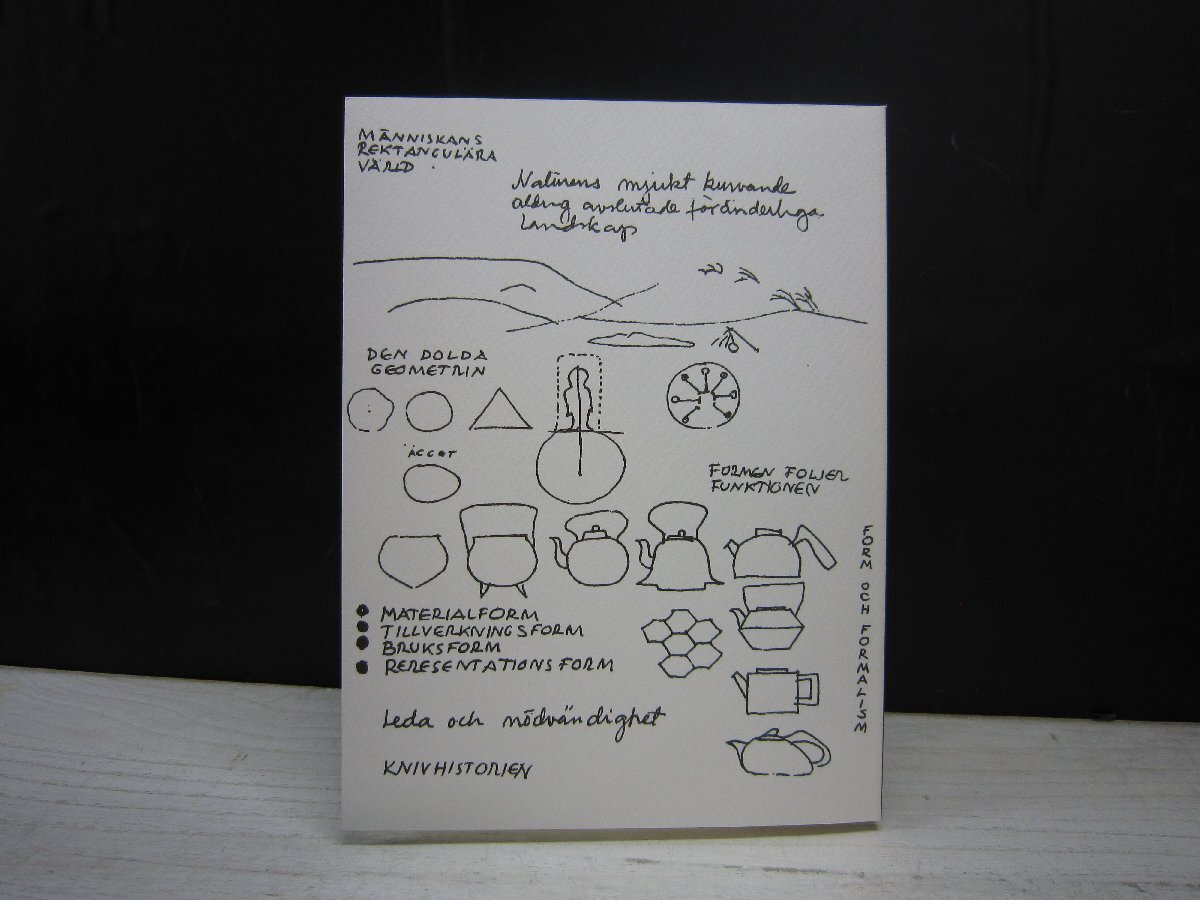 MÄNNISKANS
REKTANGULÄRA
VÄRLD
Naturens mjukt kurvande
aldrig avslutade föränderliga
Landskap
DEN DOLDA
GEOMETRIN
ÄGGET
FORMEN FÖLJER
FUNKTIONEN
FORM OCH FORMALISM
MATERIALFORM
TILLVERKNINGSFORM
BRUKSFORM
REPRESENTATIONSFORM
Leda och nödvändighet
KNIVHISTORIEN